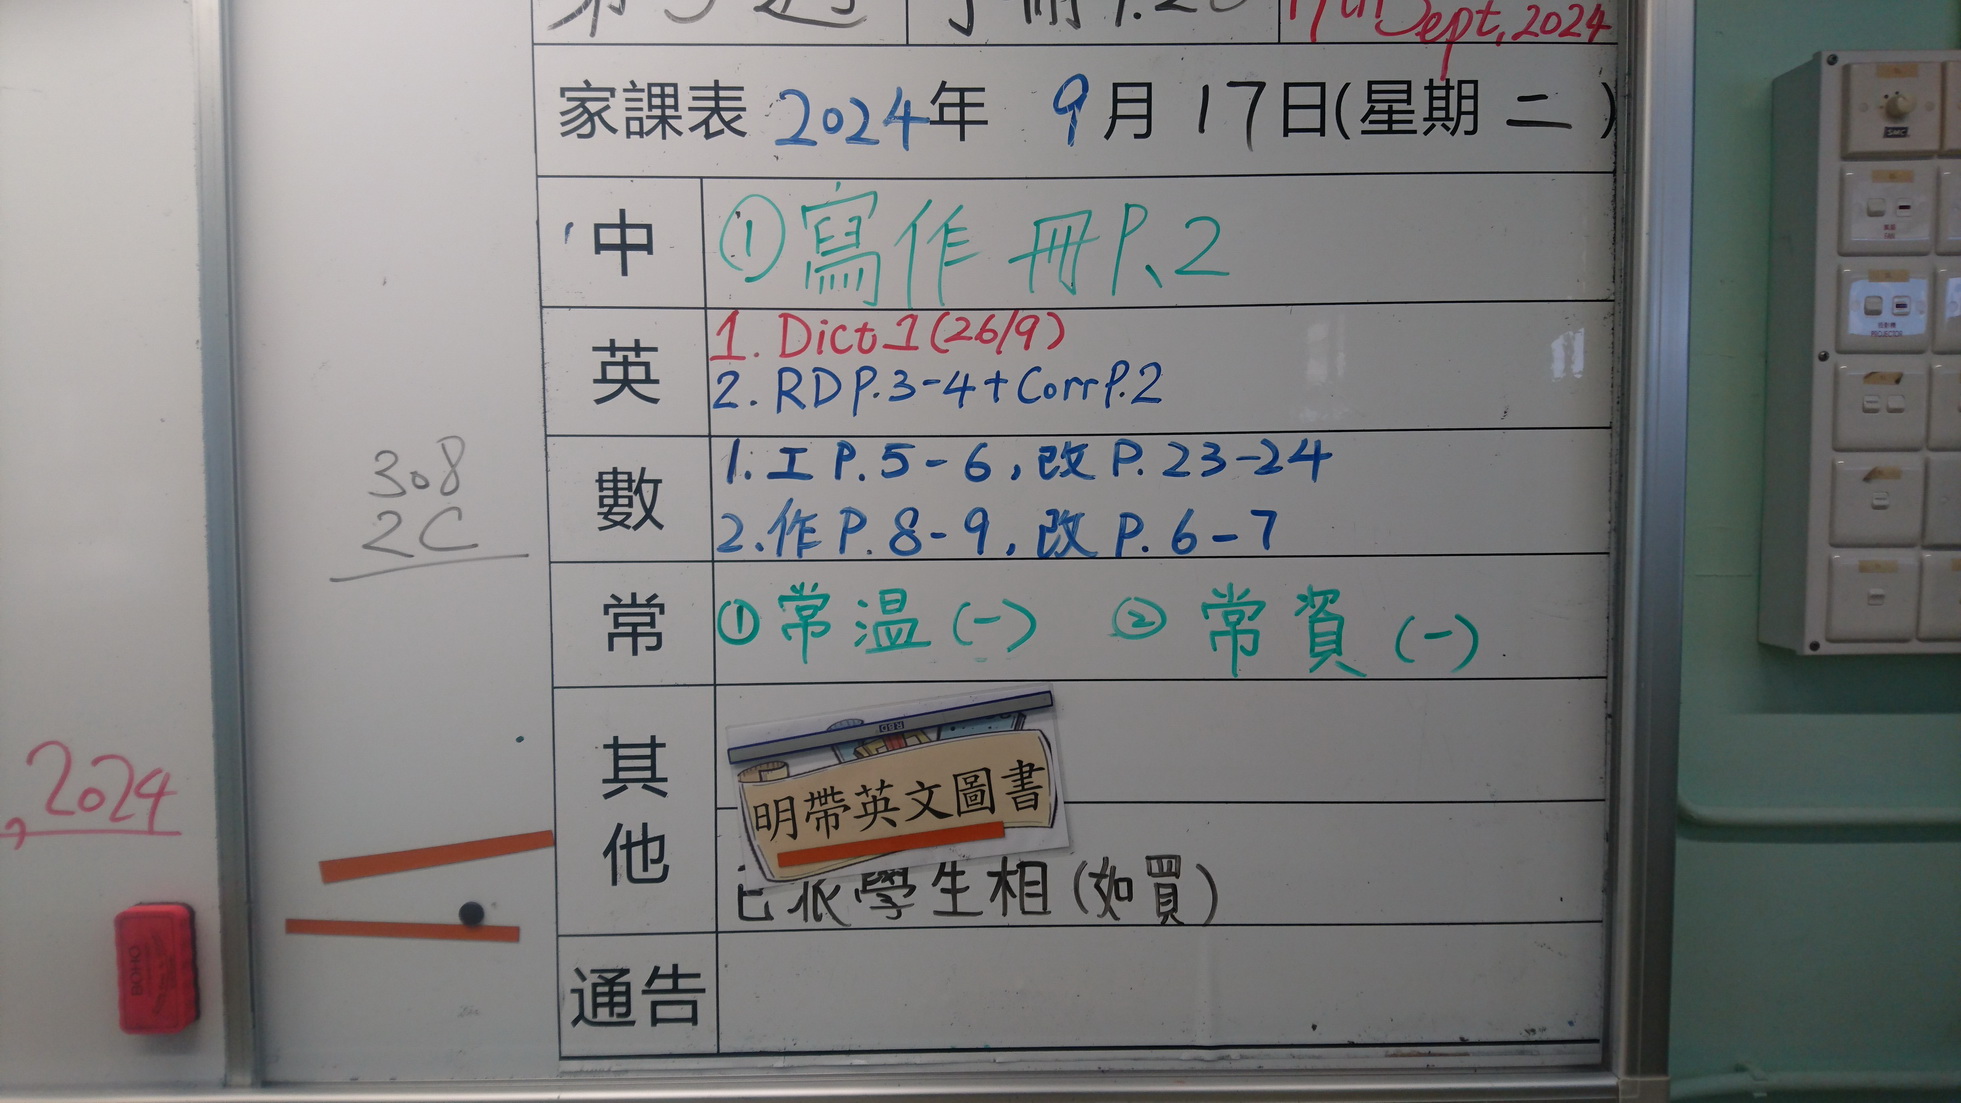 手冊P.20
Sept, 2024
家課表 2024年 9月17日(星期二)
中 ①寫作冊P.2
英 1. Dict 1 (26/9)
2. RD P.3-4 + Corr P.2
數 1. 工 P.5-6, 改 P.23-24
2. 作 P.8-9, 改 P.6-7
常 ①常溫(一) ②常資(一)
其他 明帶英文圖書
已派學生相(如買)
通告
308
2C
, 2024
BOHO
SMC
PROJECTOR